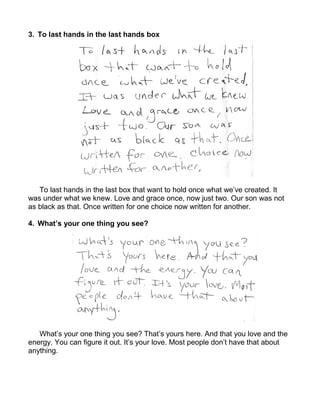 3. To last hands in the last hands box
To last hands in the last
box that want to hold
once what we've created.
It was under what we knew
Love and grace once, now
just two. Our son was
not as black as that. Once
written for one choice now
written for another.
To last hands in the last box that want to hold once what we've created. It
was under what we knew. Love and grace once, now just two. Our son was not
as black as that. Once written for one choice now written for another.
4. What's your one thing you see?
What's your one thing you see?
That's yours here. And that you
love and the energy. You can
figure it out. It's your love. Most
people don't have that about
anything.
What's your one thing you see? That's yours here. And that you love and the
energy. You can figure it out. It's your love. Most people don't have that about
anything.